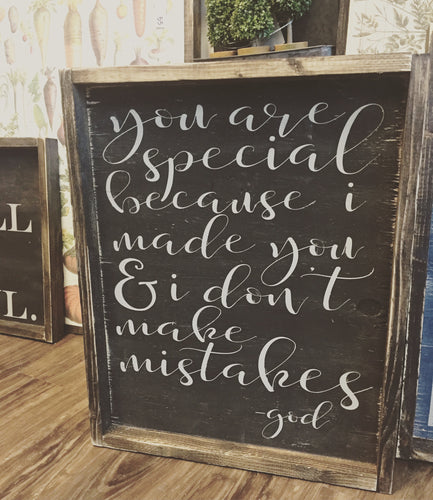 you are
special
because i
made you
& i don't
make
mistakes
-god
LL
L.